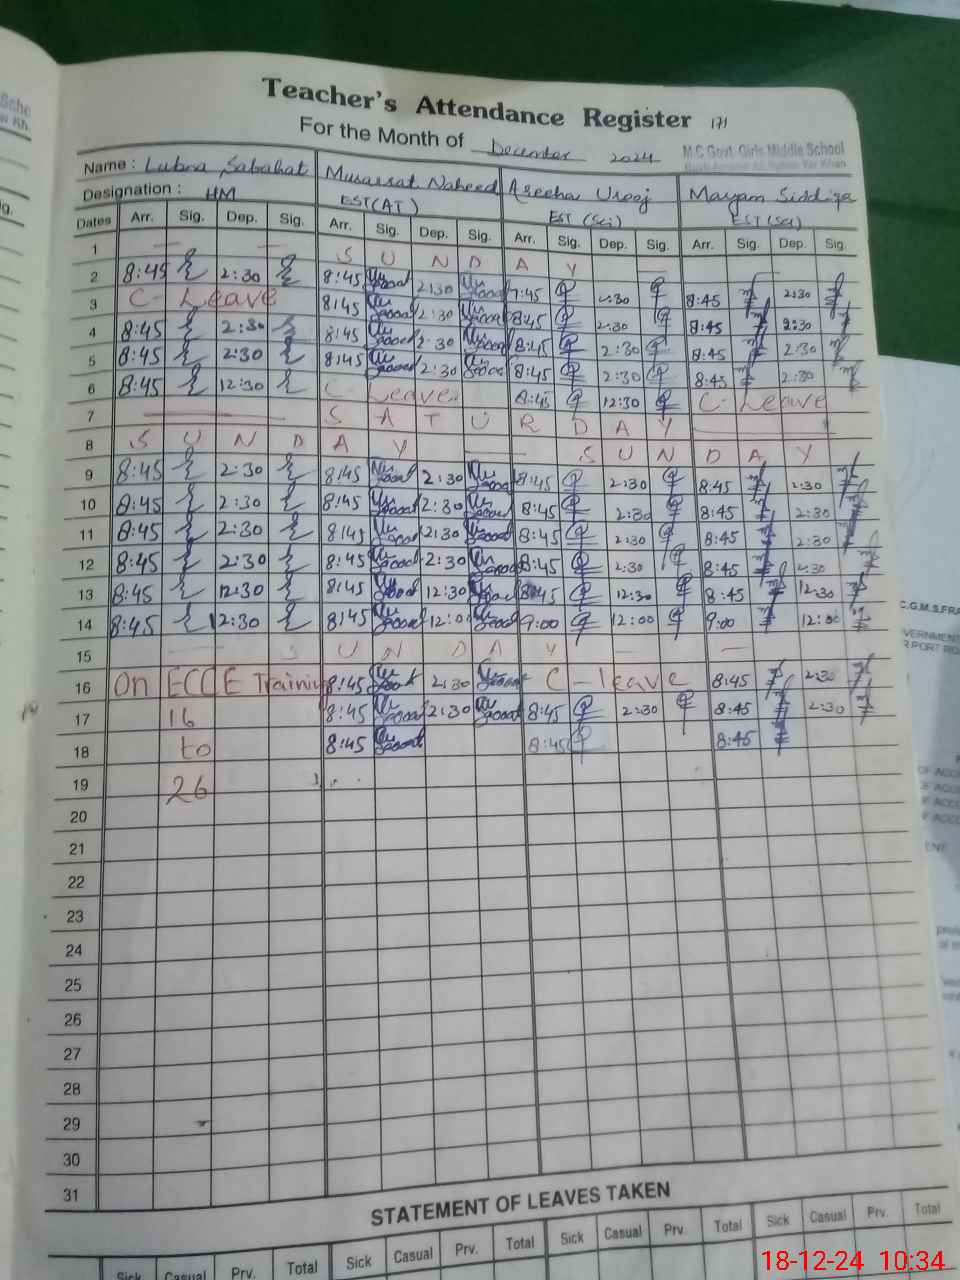 Teacher's Attendance Register 171
For the Month of December 2024 M.C Govt. Girls Middle School
Name : Lubna Sabahat Musarrat Naheed Areeha Urooj Maryam Siddiqa
Designation : HM EST(AT) EST (Sci) EST (Sci)
Dates Arr. Sig. Dep. Sig. Arr. Sig. Dep. Sig. Arr. Sig. Dep. Sig. Arr. Sig. Dep. Sig.
1 S U N D A Y
2 8:45 2:30 8:45 2:30 7:45 2:30 8:45 2:30
3 C- Leave 8:45 2:30 8:45 2:30 8:45 2:30
4 8:45 2:30 8:45 2:30 8:45 2:30 8:45 2:30
5 8:45 2:30 8:45 2:30 8:45 2:30 8:45 2:30
6 8:45 12:30 C- Leave 8:45 12:30 C- Leave
7 S A T U R D A Y
8 S U N D A Y S U N D A Y
9 8:45 2:30 8:45 2:30 8:45 2:30 8:45 2:30
10 8:45 2:30 8:45 2:30 8:45 2:30 8:45 2:30
11 8:45 2:30 8:45 2:30 8:45 2:30 8:45 2:30
12 8:45 2:30 8:45 2:30 8:45 2:30 8:45 2:30
13 8:45 12:30 8:45 12:30 8:45 12:30 8:45 12:30
14 8:45 12:30 8:45 12:00 9:00 12:00 9:00 12:00
15 S U N D A Y
16 On ECCE Training 8:45 2:30 C-leave 8:45 2:30
17 16 8:45 2:30 8:45 2:30 8:45 2:30
18 to 8:45 8:45 8:45
19 26
20
21
22
23
24
25
26
27
28
29
30
31
STATEMENT OF LEAVES TAKEN
Sick Casual Prv. Total Sick Casual Prv. Total Sick Casual Prv. Total Sick Casual Prv. Total
18-12-24 10:34